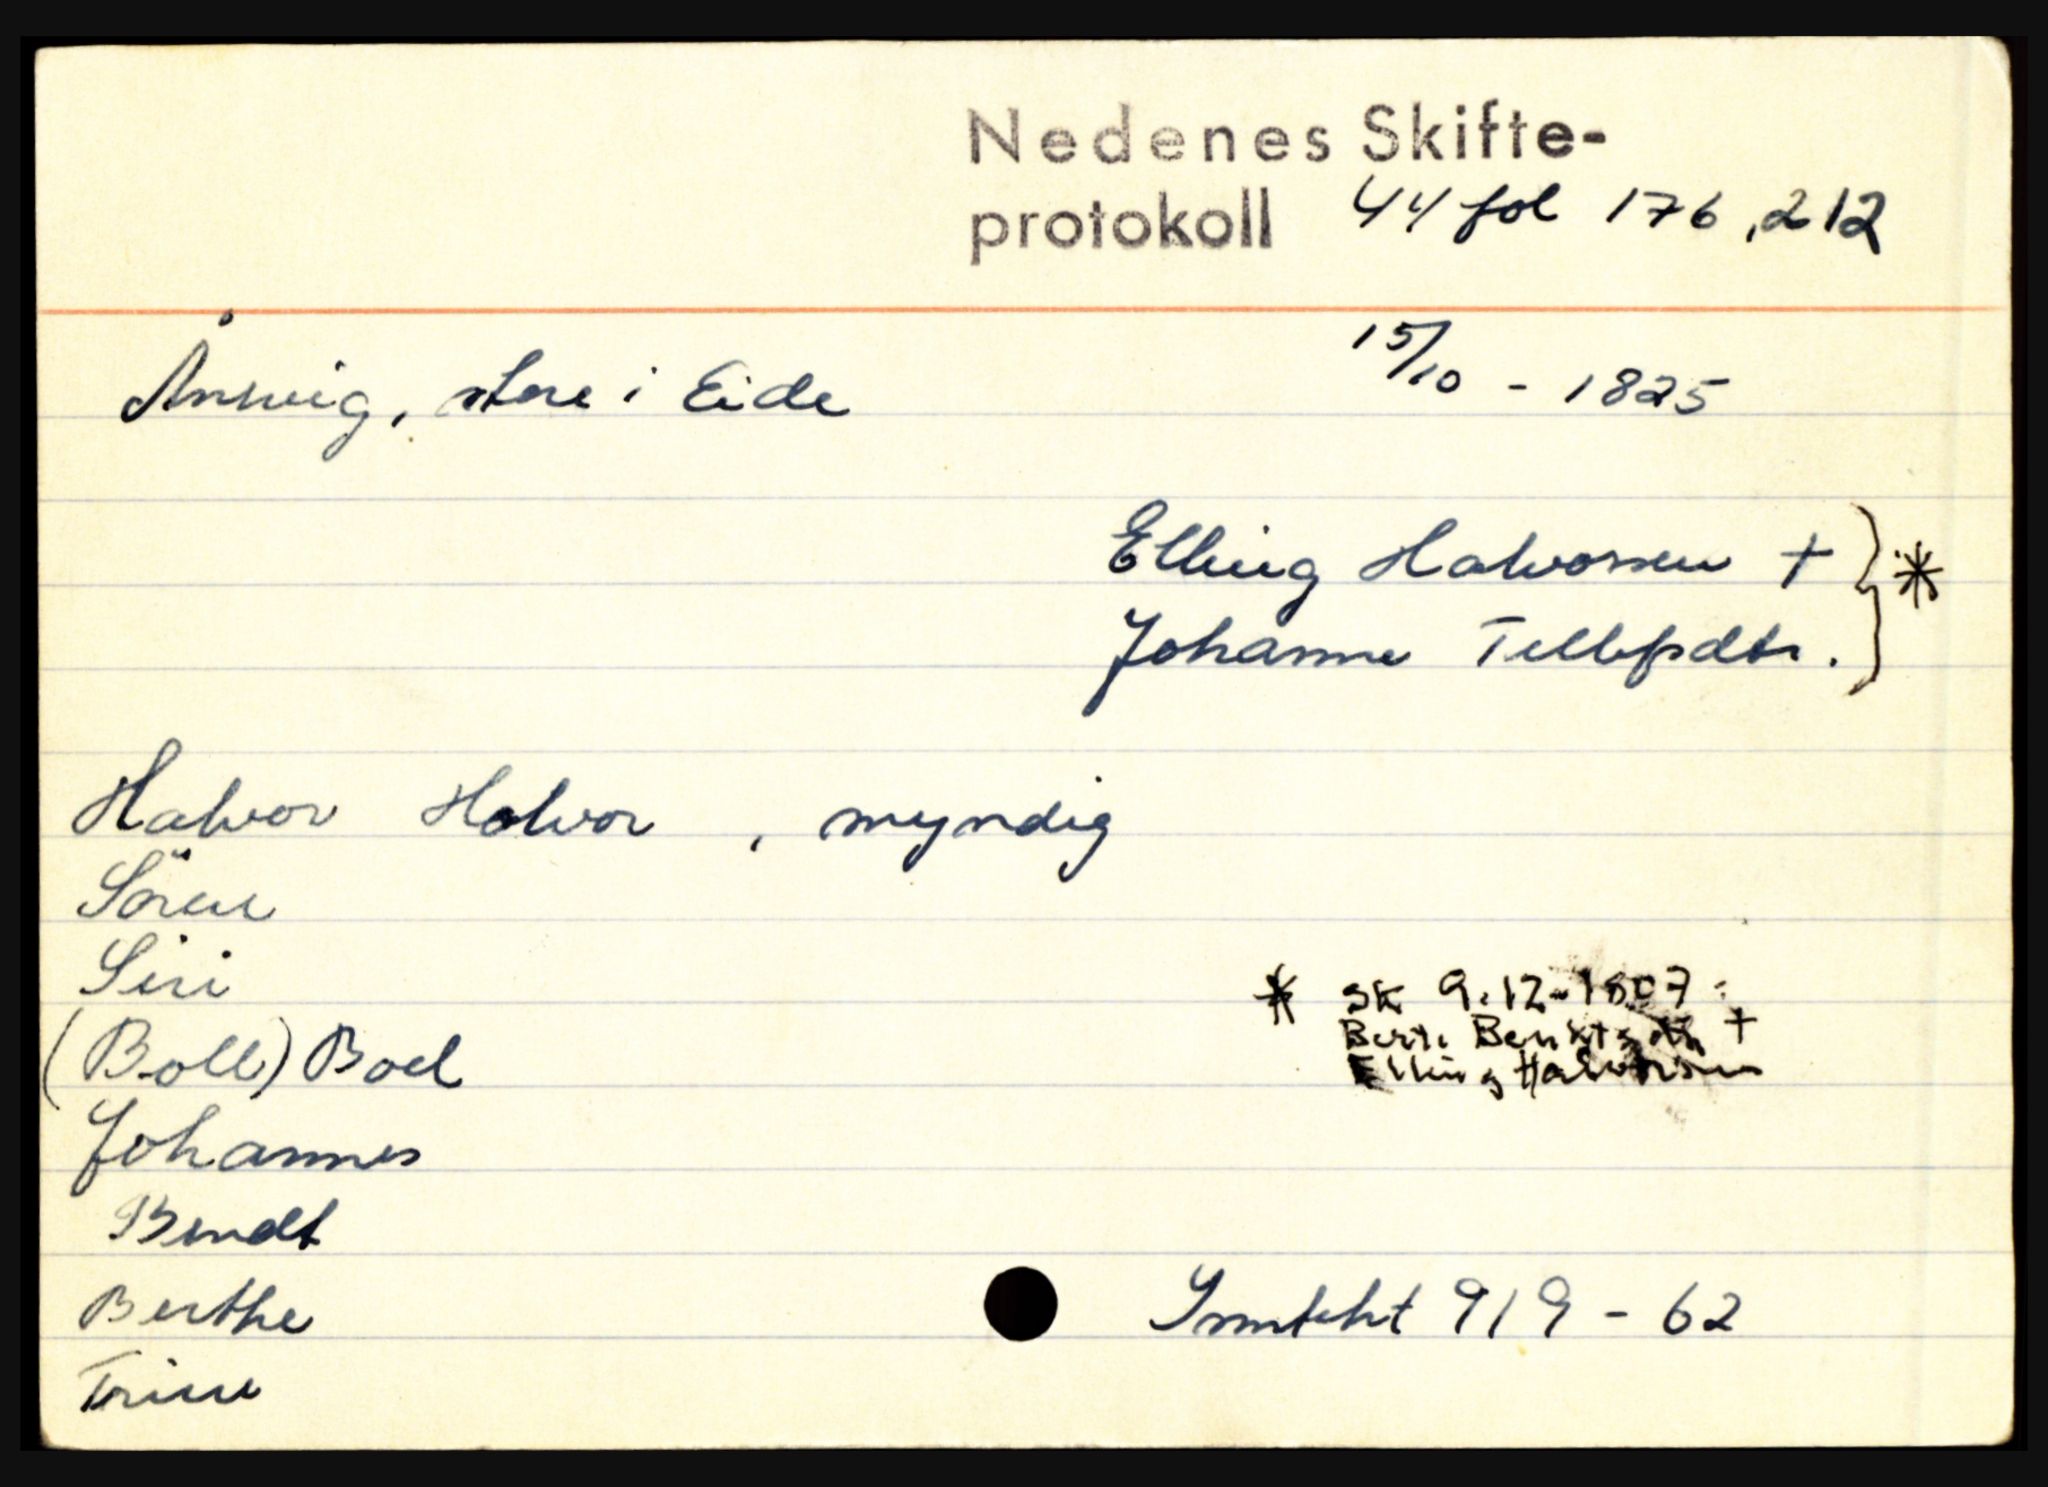 Nedenes Skifte-
protokoll 44 fol 176, 212
Ånevig, store i Eide 15/10 - 1825
Elling Halvorsen + } *
Johanne Tellefsdtr.
Halvor Halvor , myndig
Sören
Siri
(Boll) Boel
Johannes
Bendt
Berthe
Trine
* SK 9.12-1807:
Berte Benktsdtr +
Elling Halvorsen
Inntekt 919 - 62